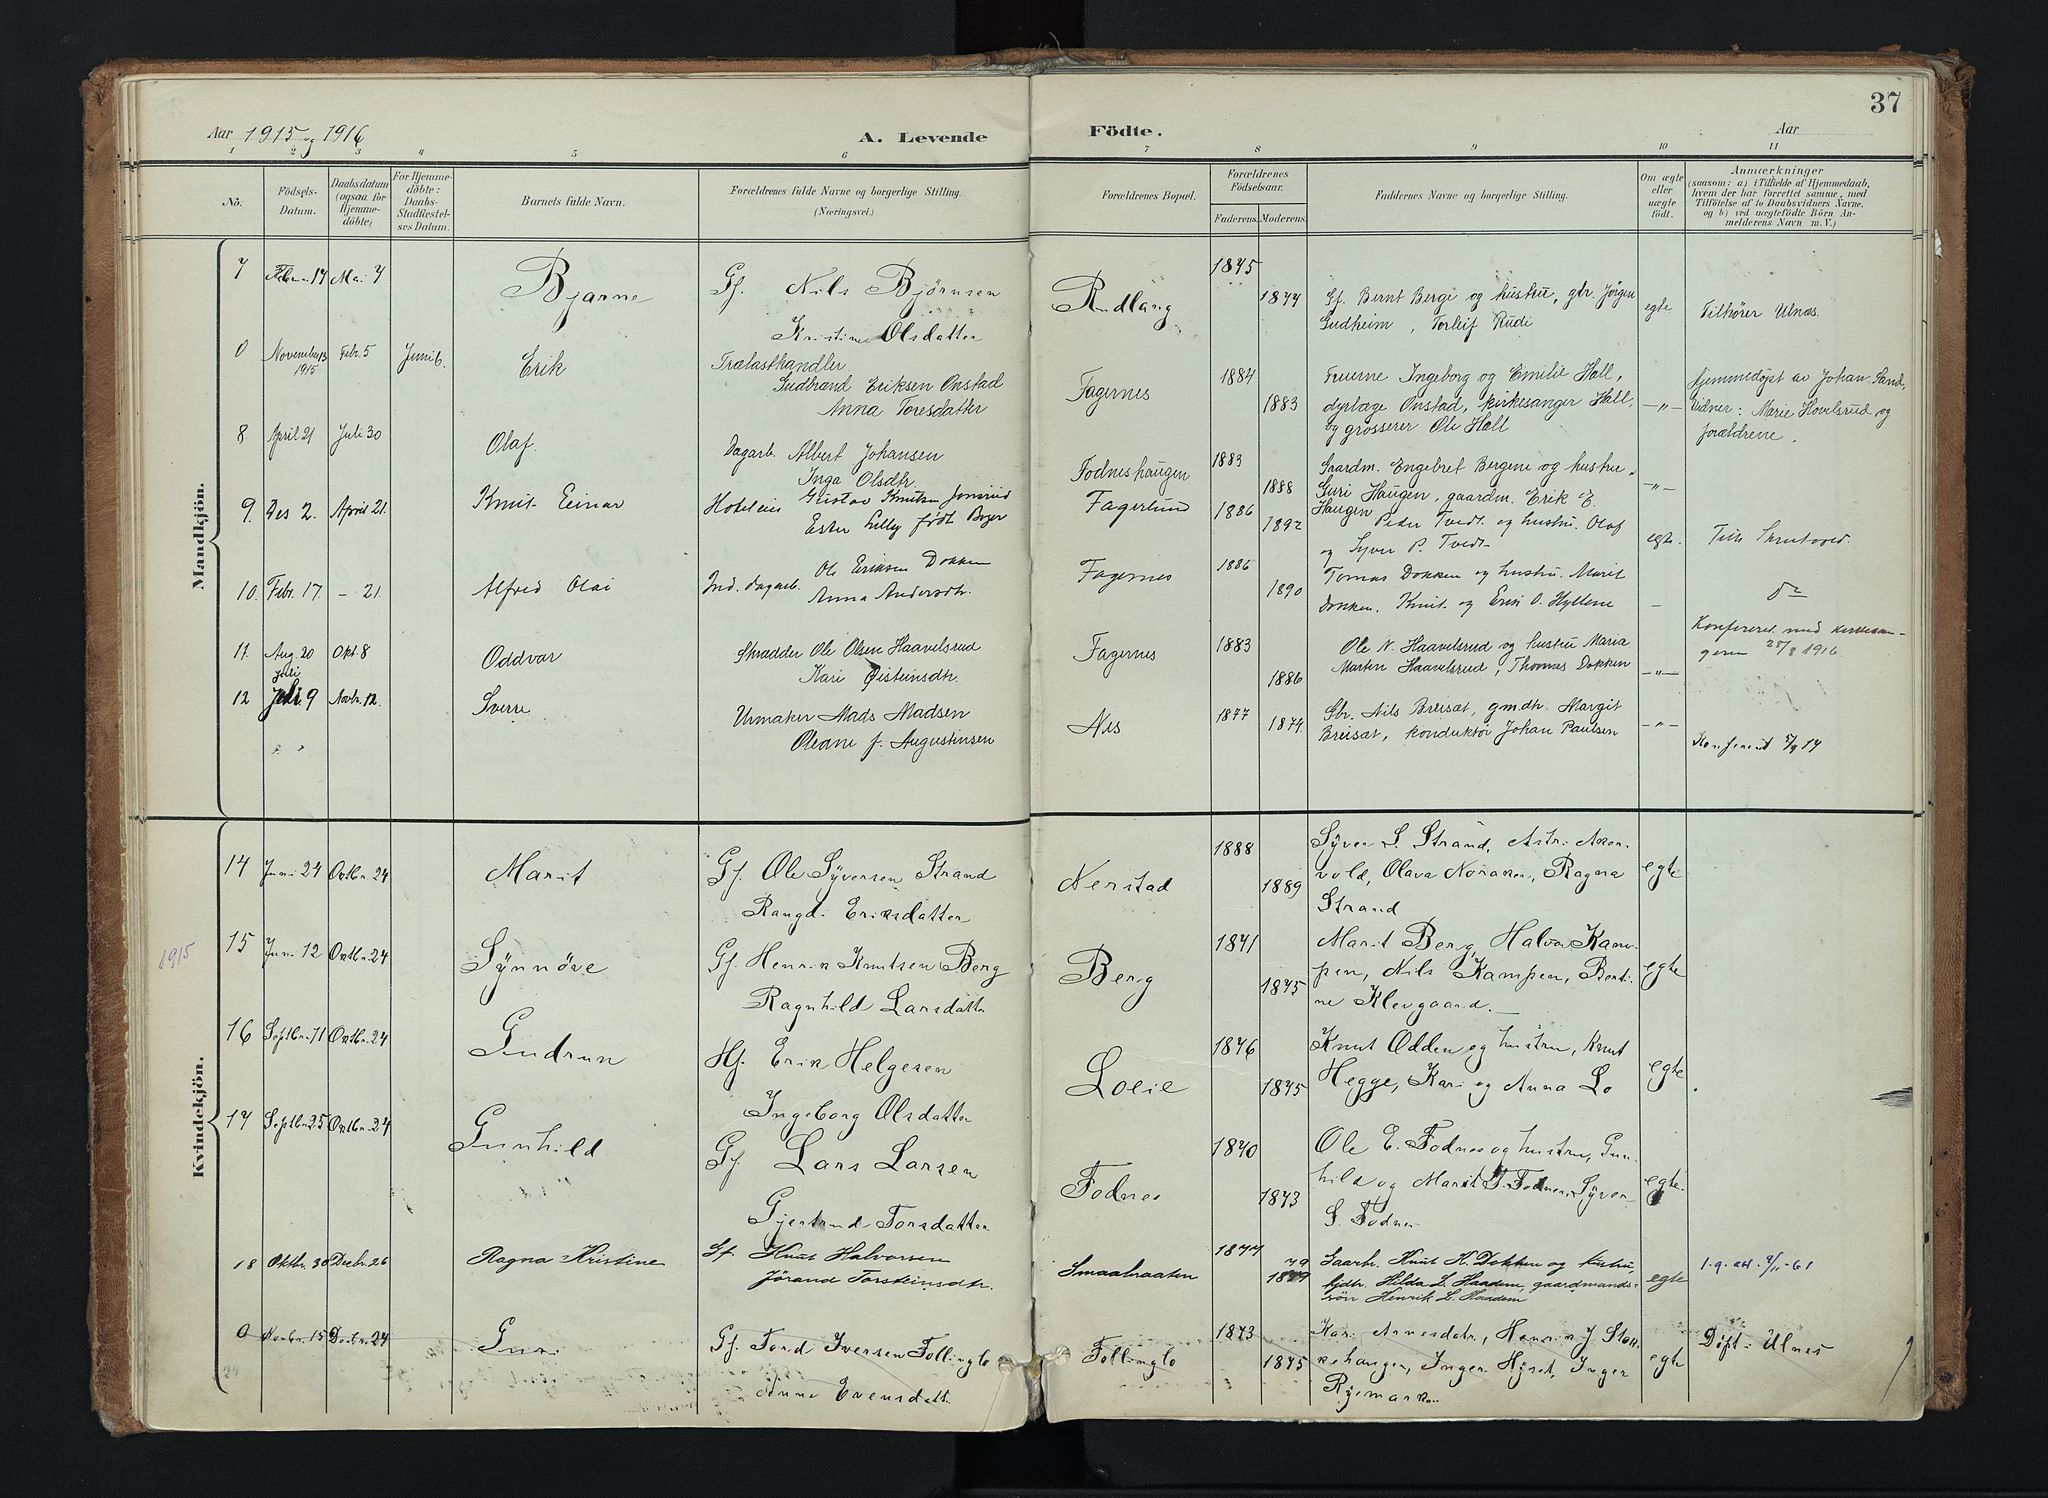 37
Aar 1915 og 1916
A. Levende
Födte.
Aar
1 2 3 4 5 6 7 8 9 10 11
No.
Födsels-
Datum.
Daabsdatum
(ogsaa for
Hjemme-
döbte)
For Hjemme-
döbte:
Daabs-
Stadfæstel-
ses Datum.
Barnets fulde Navn.
Forældrenes fulde Navne og borgerlige Stilling.
(Næringsvei.)
Forældrenes Bopæl.
Forældrenes
Födselsaar.
Faderens. Moderens.
Faddernes Navne og borgerlige Stilling.
Om ægte
eller
uægte
födt.
Anmærkninger
(saasom: a) i Tilfælde af Hjemmedaab,
hvem der har forrettet samme, med
Tilföielse af to Daabsvidners Navne,
og b) ved uægtefödte Börn An-
melderens Navn m. V.)
Mandkjön.
7 Febr. 17 Mai 7 Bjarne
Gf. Nils Björnsen
Kristine Olsdatter
1875
1877
Gf. Bernt Berge og hustru, gtr. Jörgen
Gudheim, Torleif Rudi
egte
Tilhörer Ulnæs.
0 November 13 1915 Febr. 5 Juni 6. Erik
Trælasthandler
Gudbrand Eriksen Onstad
Anna Toresdatter
Fagernes
1884
1883
Fruerne Ingeborg og Emilie Hall,
dyrlæge Onstad, kirkesanger Hall,
og grosserer Ole Hall
—"—
Hjemmedøpt av Johan Sand,
Vidner: Marie Hovelsrud og
forældrene.
8 April 21 Juli 30 Olaf.
Dagarb. Albert Johansen
Inga Olsdtr.
Fodneshaugen
1883
1888
Gaardm. Engebret Bergene og hustru,
Guri Haugen, gaardm. Erik E.
Haugen
—"—
9. Des 2. April 21. Knut Einar
Hoteleier Gustav Knutsen Jomsrud
Ester Lilley født Boger
Fagerlund
1886
1892
Peder Tvedt og hustru. Olaf
og Syver P. Tvedt
egte.
10. Febr. 17. — 21. Alfred Olai
Ind. dagarb. Ole Eriksen Dokken
Anna Andersdtr.
Fagernes
1886
1890
Tomas Dokken og hustru. Marit
Dokken. Knut og Erik O. Hyllene
—
Do
11. Aug. 20 Okt. 8 Oddvar
Skrædder Ole Olsen Haavelsrud
Kari Øisteinsdtr.
Fagernes
1883
1886
Ole N. Haavelsrud og hustru Maria
Marten Haavelsrud, Thomas Dokken
—"—
Konferert med kirkesan-
geren 25/8 1916.
12 Juli
Juli 9 Novbr. 12. Sverre
Urmaker Mads Madsen
Oleane f. Augustinsen
Nes
1877
1874
Sbr. Nils Breisæt, gmdtr. Margit
Breisæt, konduktör Johan Paulsen
—"—
Kvindekjön.
1915
14 Juni 24 Oktbr. 24 Marit
Gf. Ole Syversen Strand
Rangdi Eriksdatter
Nerstad
1888
1889
Syver S. Strand, Astri Aker-
vold, Olava Noraker, Ragna
Strand
egte
15 Juni 12 Oktbr. 24 Synnöve
Gf. Henrik Knutsen Berg
Ragnhild Larsdatter
Berg
1871
1875
Marit Berg, Halvor Kam-
pen, Nils Kampen, Berti-
ne Klevgaard.
egte
16 Septbr. 11 Oktbr. 24 Gudrun
Hf. Erik Helgesen
Ingeborg Olsdatter
Loeie
1876
1875
Knut Odden og hustru, Knut
Hegge, Kari og Anna Lo
egte
17 Septbr. 25 Oktbr. 24 Gunhild
Gf. Lars Larsen
Gjertrud Torsdatter
Fodnes
1870
1873
Ole E. Fodnes og hustru, Gun-
hild og Marit T. Fodnes, Syver
S. Fodnes
egte
18 Oktbr. 30 Decbr. 26 Ragna Kristine
Gf. Knut Halvorsen
Jörand Torsteinsdtr.
Smaabraaten
1877
79
1879
Gaarbr. Knut K. Dokken og hustru,
gjdtr. Hilda L. Haadem, gaardmands-
sön Henrik L. Haadem
egte
0 Novbr. 15 Decbr. 24 Guri
Gf. Tord Iversen Follinglo
Anne Evensdatt.
Follinglo
1873
1875
Kari Arnesdatr, Henrik J. Stor-
kehaugen, Inger Hyset, Inger
Ryemarken
egte
Döpt i Ulnes